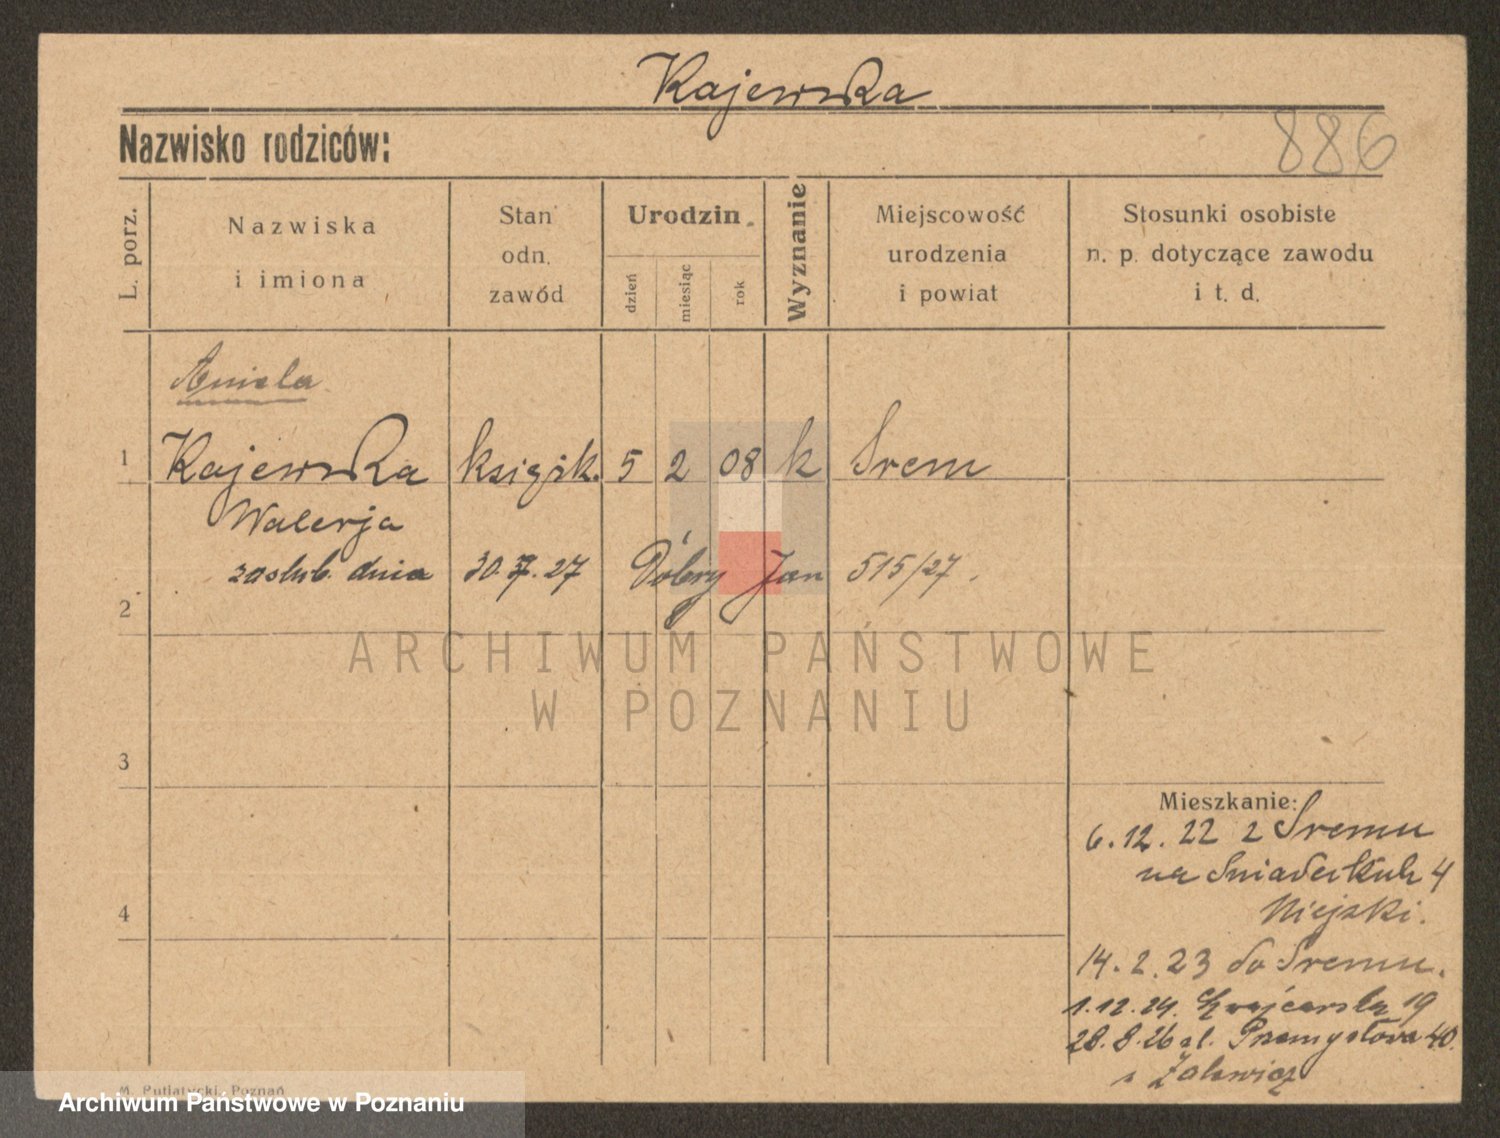 Kajewska
Nazwisko rodziców:
886
L. porz.
Nazwiska
i imiona
Stan
odn.
zawód
Urodzin
dzień
miesiąc
rok
Wyznanie
Miejscowość
urodzenia
i powiat
Stosunki osobiste
n. p. dotyczące zawodu
i t. d.
Aniela
1 Kajewska książk. 5 2 08 k Srem
Walerja
zaslub. dnia 30. 7. 27 Dobry Jan 515/27.
2
ARCHIWUM PAŃSTWOWE
W POZNANIU
3
Mieszkanie:
6. 12. 22 z Sremu
na Sniadeckich 4
Niejski.
4
14. 2. 23 do Sremu.
1. 12. 24. 19
28. 8. 26 Przemysłowa 40.
Zalewicz
M. Putiatycki, Poznań
Archiwum Państwowe w Poznaniu